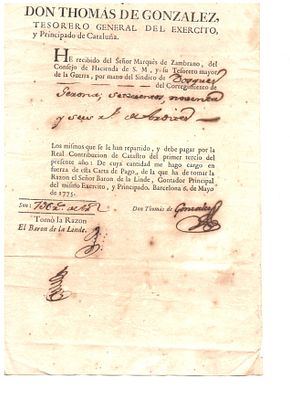 DON THOMÁS DE GONZALEZ,
TESORERO GENERAL DEL EXERCITO,
y Principado de Cataluña.
HE recibido del Señor Marqués de Zambrano, del
Consejo de Hacienda de S. M, y su Tesorero mayor
de la Guerra, por mano del Sindico de
del Corregimiento de
Gerona; setecientos, noventa
y seis
Los mismos que se les han repartido, y debe pagar por la
Real Contribucion de Catastro del primer tercio del
presente año: De cuya cantidad me hago cargo en
fuerza de esta Carta de Pago, de la que ha de tomar la
Razon el Señor Baron de la Linde, Contador Principal
del mismo Exercito, y Principado. Barcelona 6. de Mayo
de 1775.
Son:
Don Thomás de Gonzalez
Tomó la Razon
El Baron de la Linde.